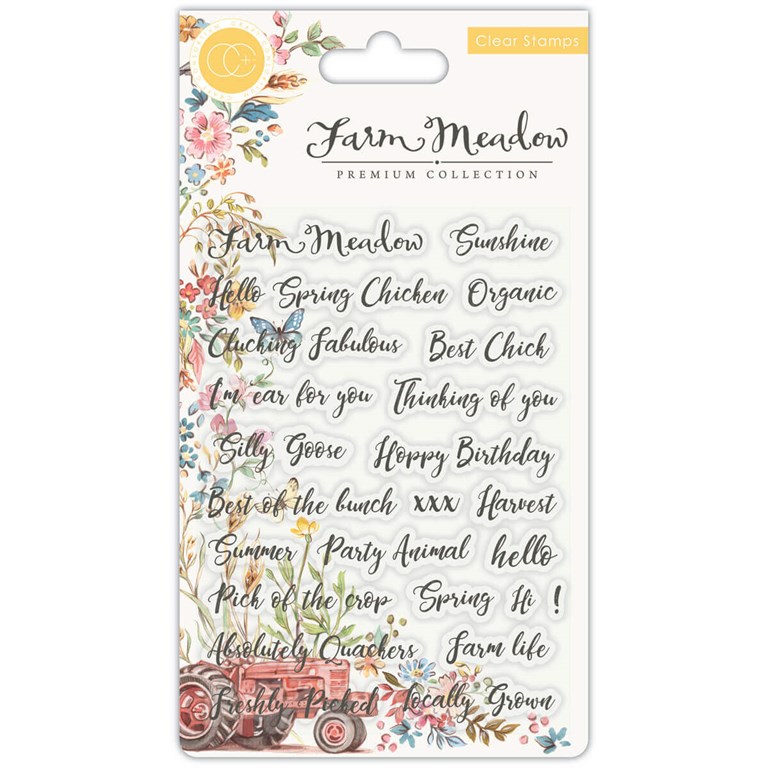 CC+
Clear Stamps
Farm Meadow
PREMIUM COLLECTION
Farm Meadow Sunshine
Hello Spring Chicken Organic
Clucking Fabulous Best Chick
I'm ear for you Thinking of you
Silly Goose Hoppy Birthday
Best of the bunch xxx Harvest
Summer Party Animal hello
Pick of the crop Spring Hi !
Absolutely Quackers Farm life
Freshly Picked Locally Grown